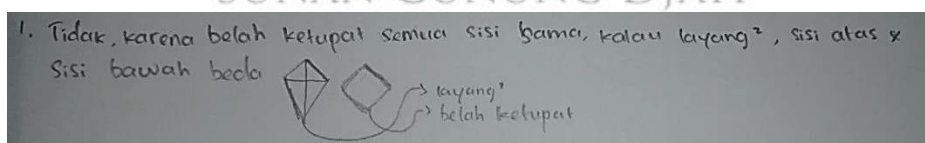 SUNAN GUNUNG DJATI
1. Tidak, karena belah ketupat semua sisi sama, kalau layang², sisi atas &
Sisi bawah beda
layang²
belah ketupat